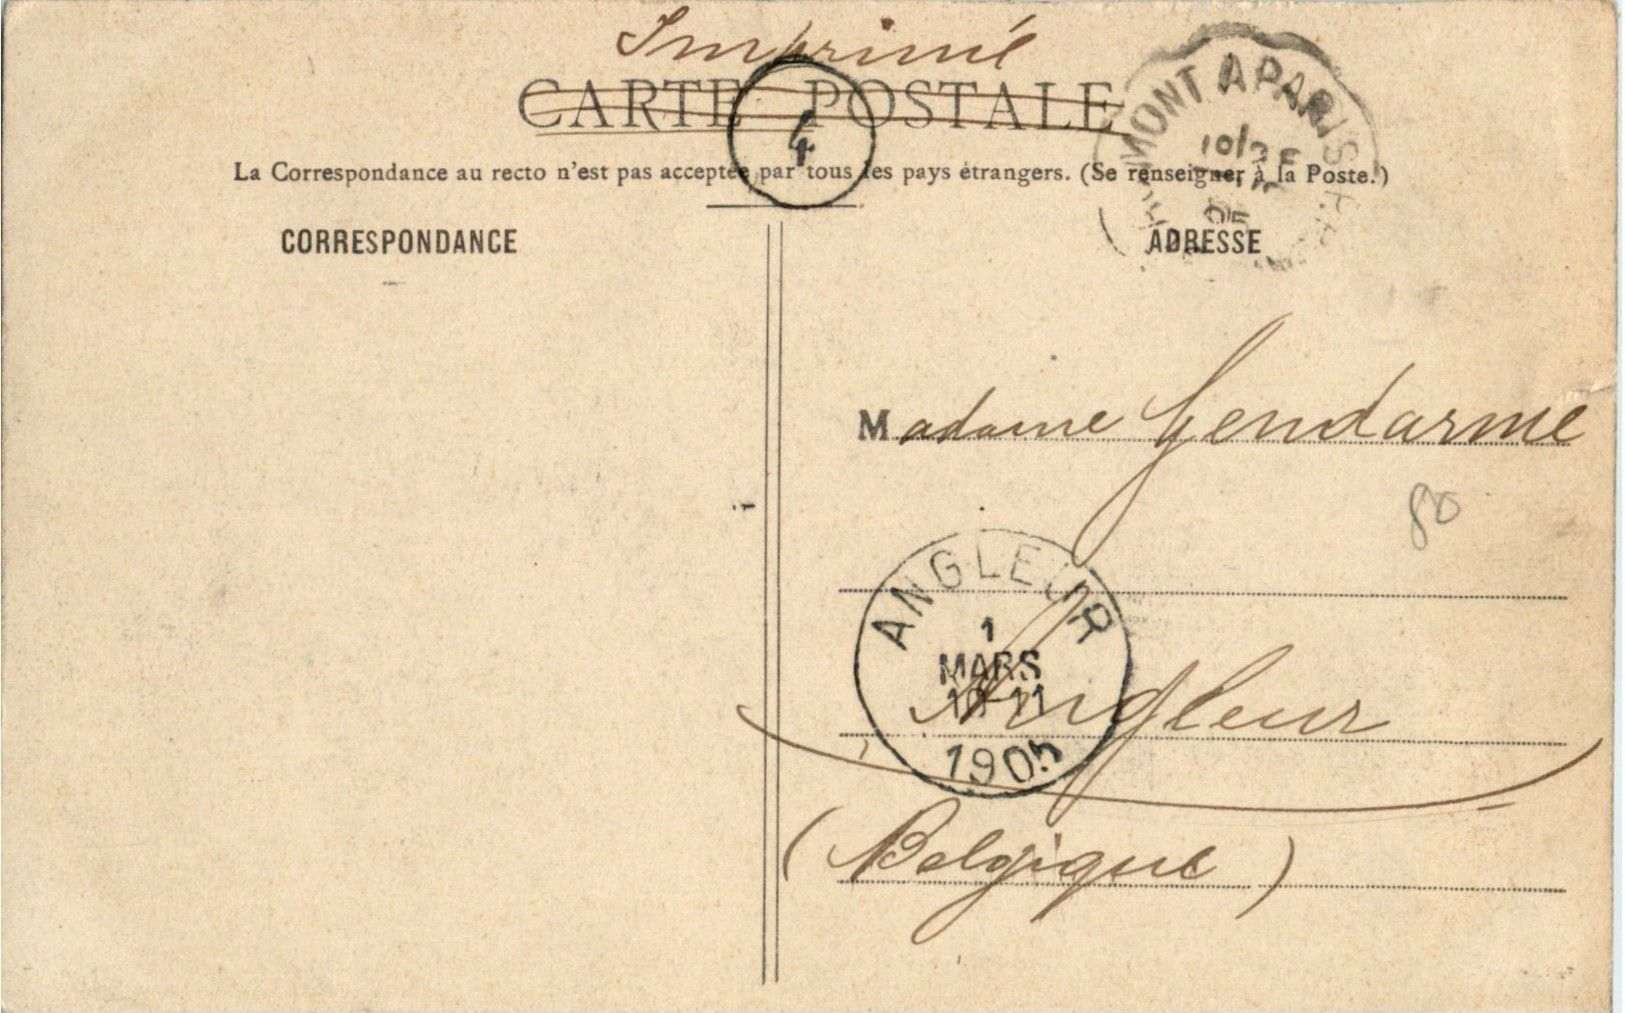 Imprimé
CARTE POSTALE
4
MONT A PARIS
La Correspondance au recto n'est pas acceptée par tous les pays étrangers. (Se renseigner à la Poste.)
CORRESPONDANCE
ADRESSE
Madame Gendarme
80
ANGLEUR
1
MARS
10-11
1905
Angleur
(Belgique)